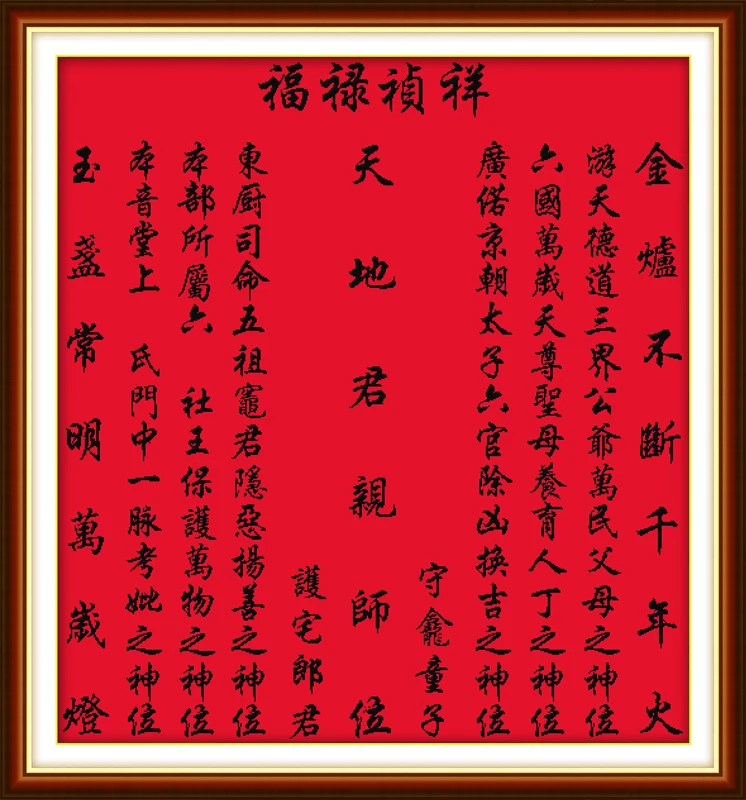 福禄祯祥
金爐不斷千年火
游天德道三界公爺萬民父母之神位
六國萬歲天尊聖母養育人丁之神位
廣偌京朝太子六官除凶換吉之神位
守龕童子
天地君親師位
護宅郎君
東厨司命五祖竈君隱惡揚善之神位
本部所屬六 社王保護萬物之神位
本音堂上 氏門中一脉考妣之神位
玉盞常明萬歲燈